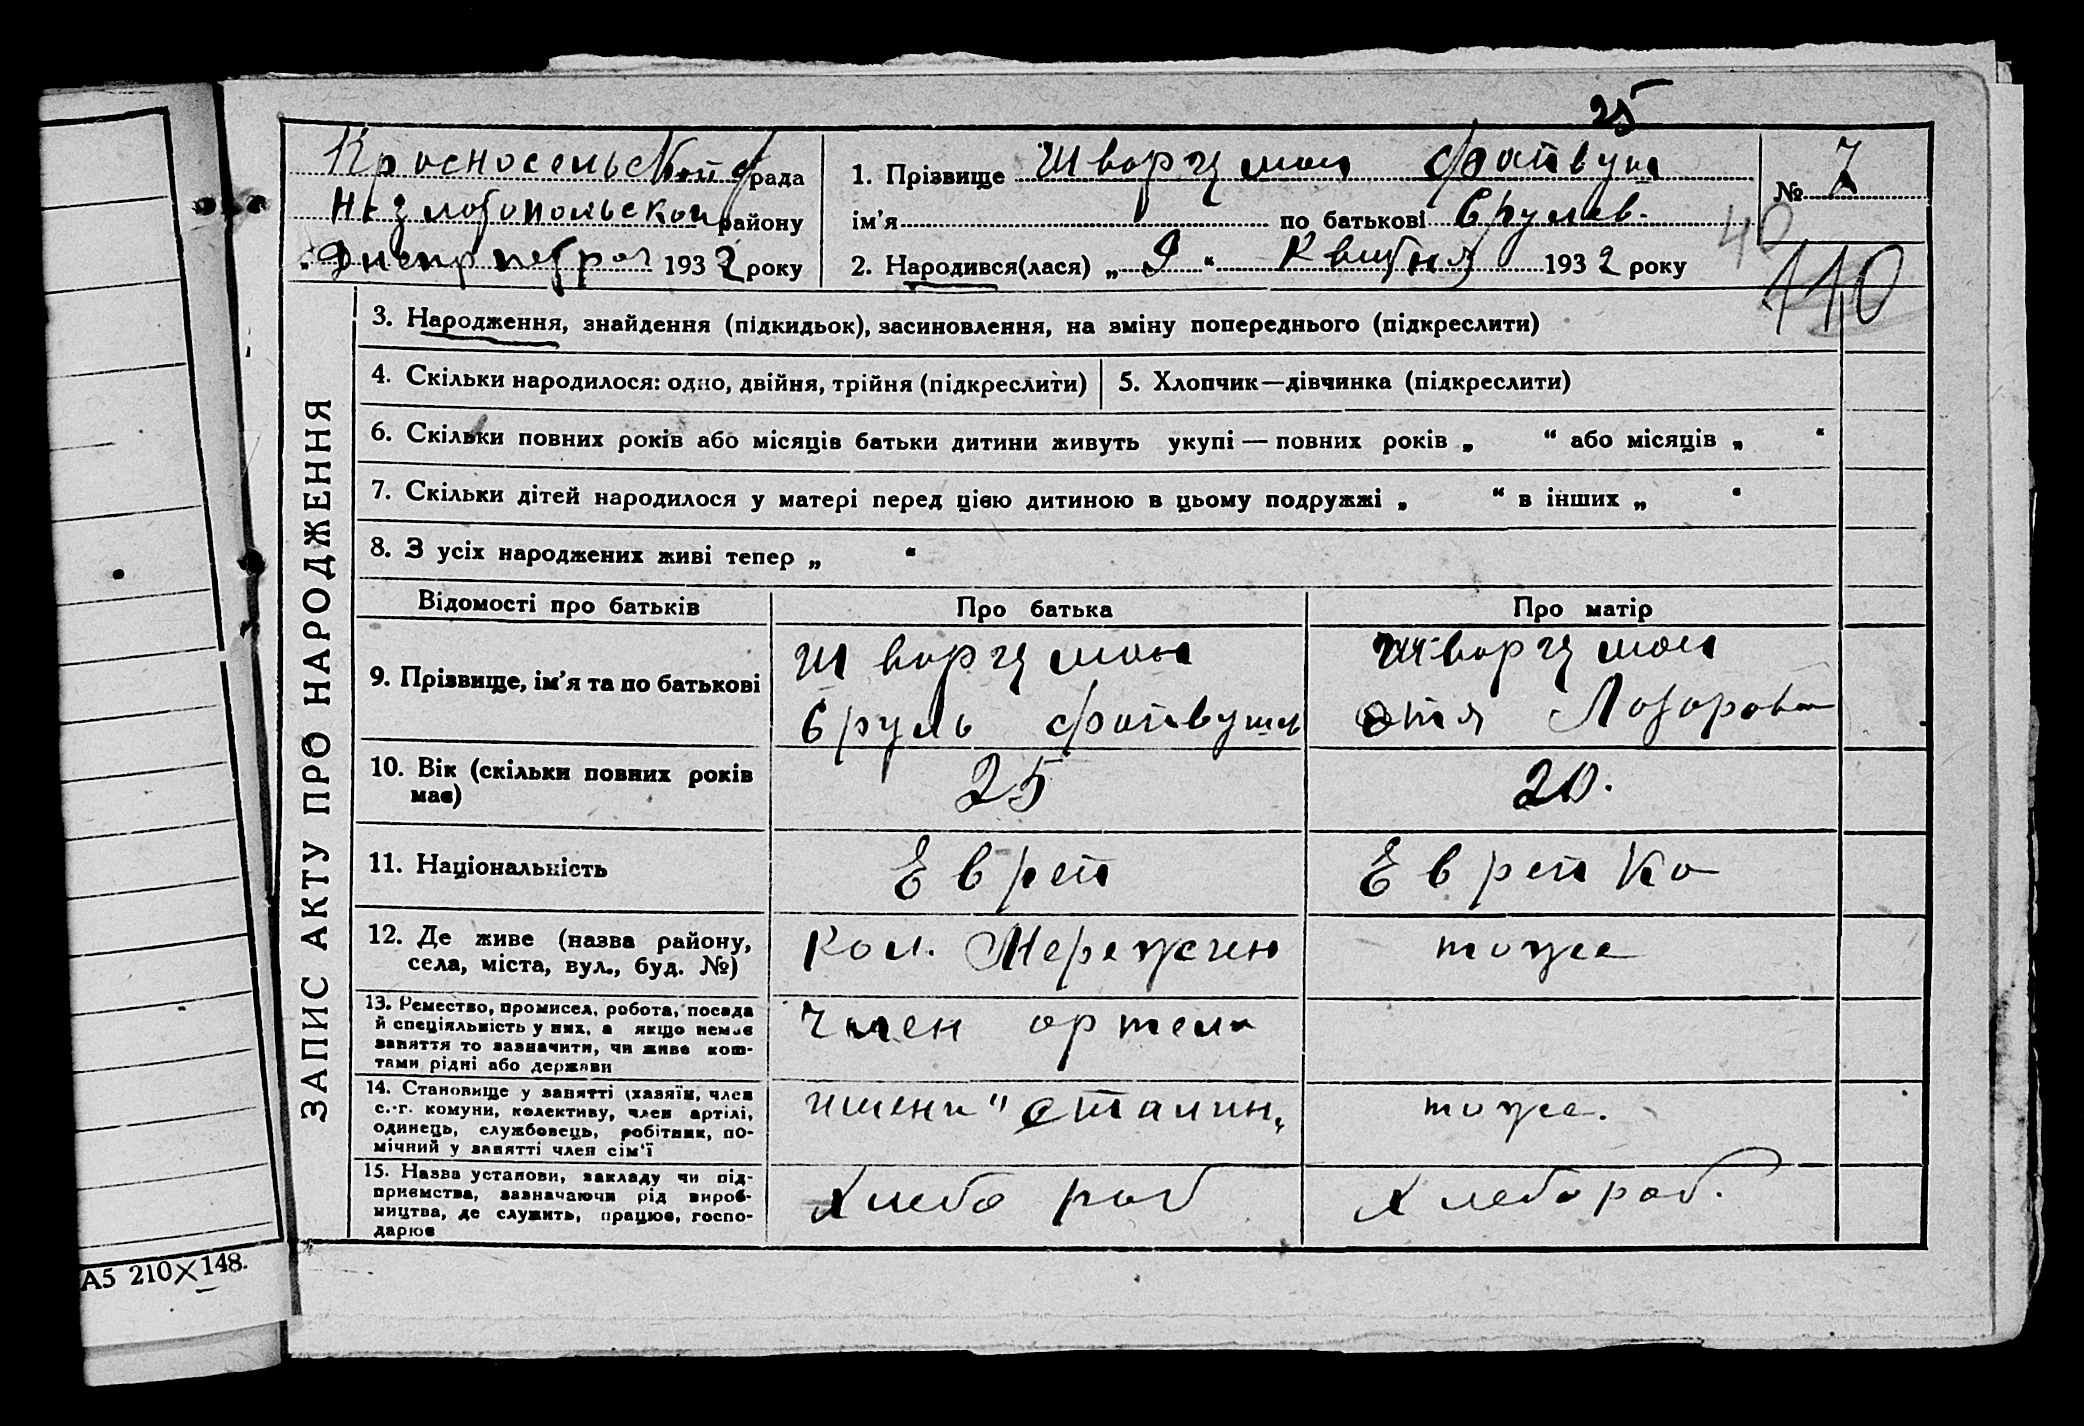 25
Красносельской рада
Незлобопольской району
„Днепрпетров 1932 року
1. Прізвище Шварцман Файвуш
ім'я по батькові Срулев.
2. Народився(лася) „9“ Квитня 1932 року
№ 7
40
110
ЗАПИС АКТУ ПРО НАРОДЖЕННЯ
3. Народження, знайдення (підкидьок), засиновлення, на зміну попереднього (підкреслити)
4. Скільки народилося: одно, двійня, трійня (підкреслити)
5. Хлопчик—дівчинка (підкреслити)
6. Скільки повних років або місяців батьки дитини живуть укупі — повних років „ “ або місяців „ “
7. Скільки дітей народилося у матері перед цією дитиною в цьому подружжі „ “ в інших „ “
8. З усіх народжених живі тепер „ “
Відомості про батьків Про батька Про матір
9. Прізвище, ім'я та по батькові
Шварцман
Сруль Файвуш
Шварцман
Этя Лазоровн
10. Вік (скільки повних років
має)
25
20.
11. Національність
Еврей
Еврейка
12. Де живе (назва району,
села, міста, вул., буд. №)
Кол. Мережген
тоже
13. Ремество, промисел, робота, посада
й спеціяльність у них, а якщо немає
заняття то зазначити, чи живе кош-
тами рідні або держави
Член ортели
14. Становище у занятті (хазяїн, член
с.-г. комуни, колективу, член артілі,
одинець, службовець, робітник, по-
мічний у занятті член сім'ї
имени "Сталин„
тоже.
15. Назва установи, закладу чи під-
приємства, зазначаючи рід вироб-
ництва, де служить, працює, госпо-
дарює
Хлебо роб
Хлебороб.
А5 210×148.